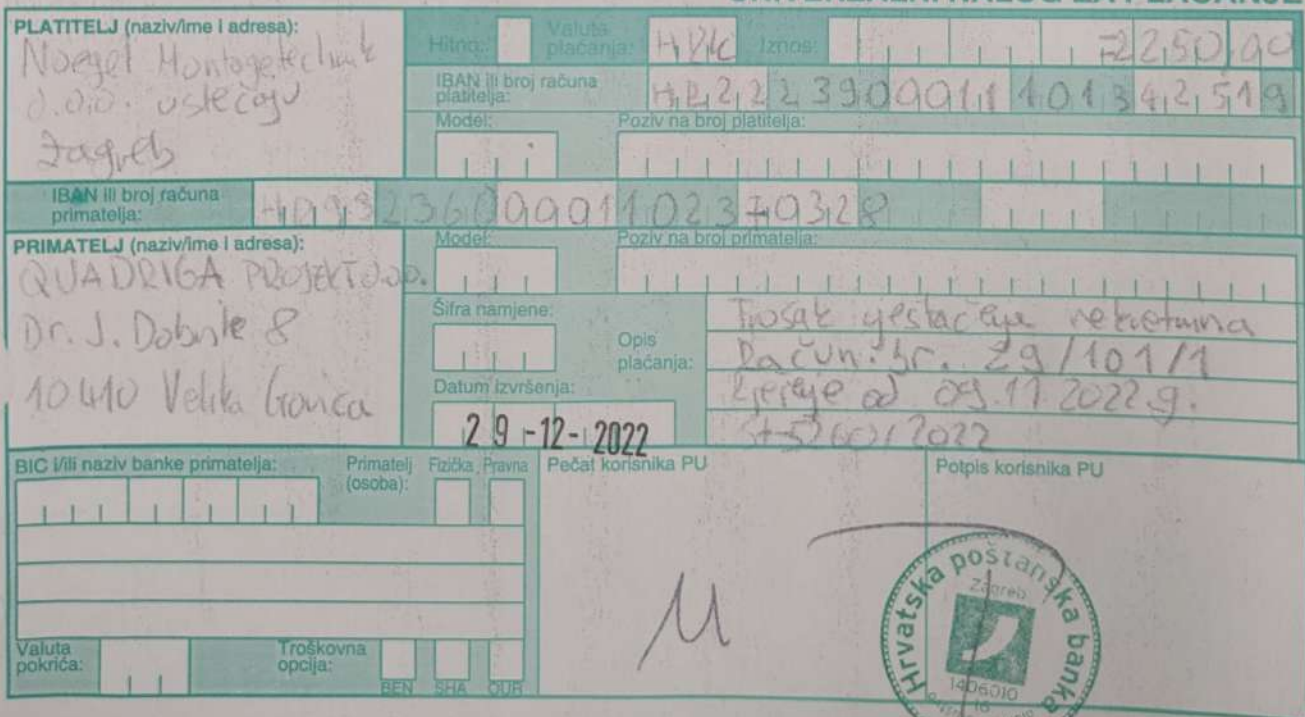 PLATITELJ (naziv/ime i adresa):
Noegel Montagetechnik
d.o.o. u stečaju
Zagreb
Hitno:
Valuta plaćanja: HRK
Iznos: =2250,00
IBAN ili broj računa platitelja:
Model:
Poziv na broj platitelja:
IBAN ili broj računa primatelja:
PRIMATELJ (naziv/ime i adresa):
QUADRIGA PROJEKT d.o.o.
Dr. J. Dobrile 8
10410 Velika Gorica
Model:
Poziv na broj primatelja:
Šifra namjene:
Datum izvršenja:
29-12-2022
Opis plaćanja:
Trošak vještačenja nekretnina
Račun: br. 29/101/1
Rješenje od 09.11.2022.g.
BIC i/ili naziv banke primatelja:
Primatelj (osoba):
Fizička
Pravna
Pečat korisnika PU
Potpis korisnika PU
Valuta pokrića:
Troškovna opcija:
BEN SHA OUR
Hrvatska poštanska banka
Zagreb
1406010
16